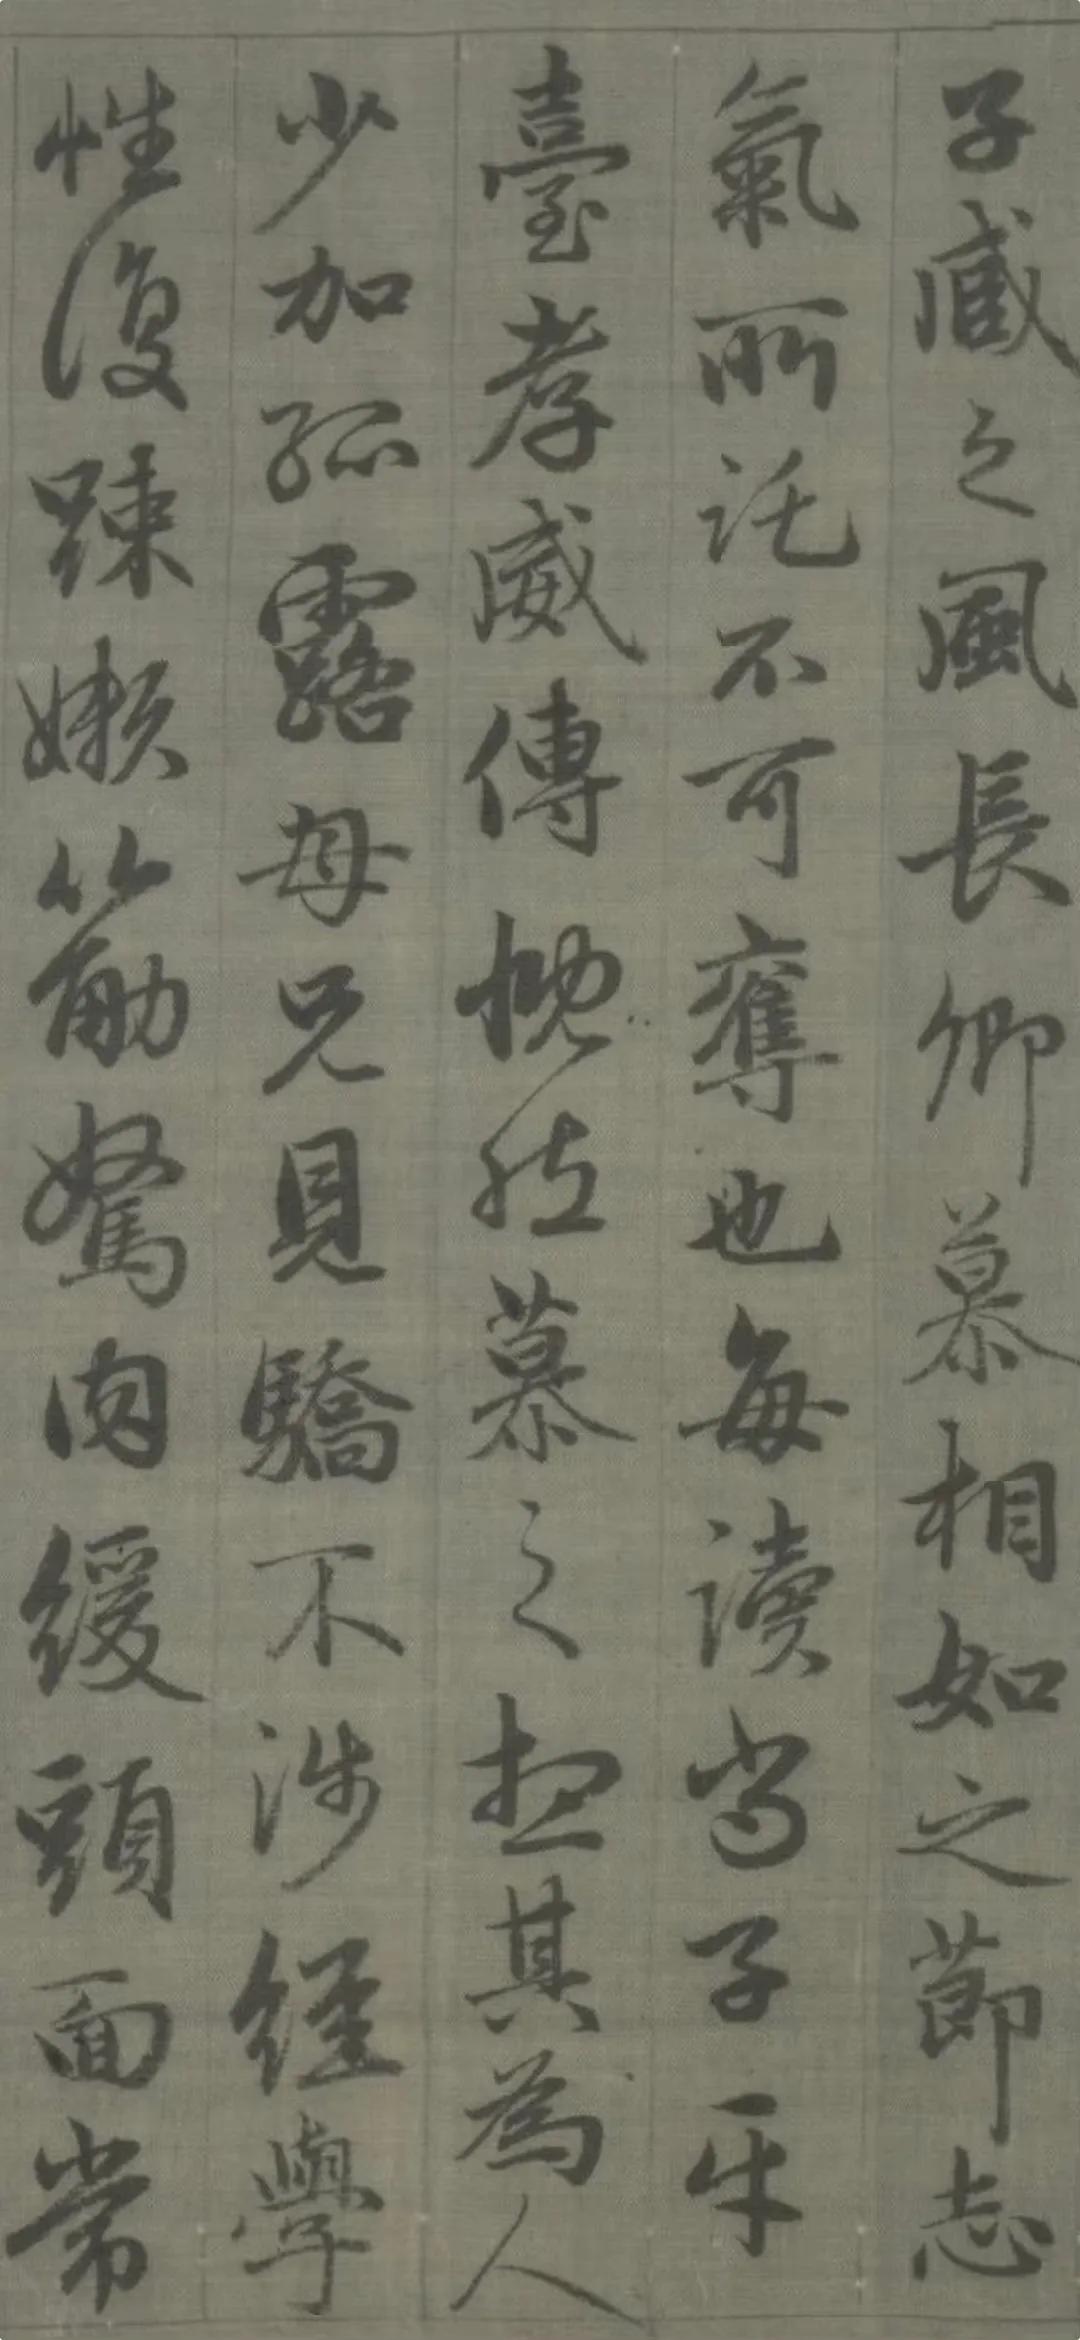 子臧之風長卿慕相如之節志
氣所託不可奪也每讀尚子平
臺孝威傳慨然慕之想其為人
少加孤露母兄見驕不涉經學
性復踈嬾筋駑肉緩頭面常